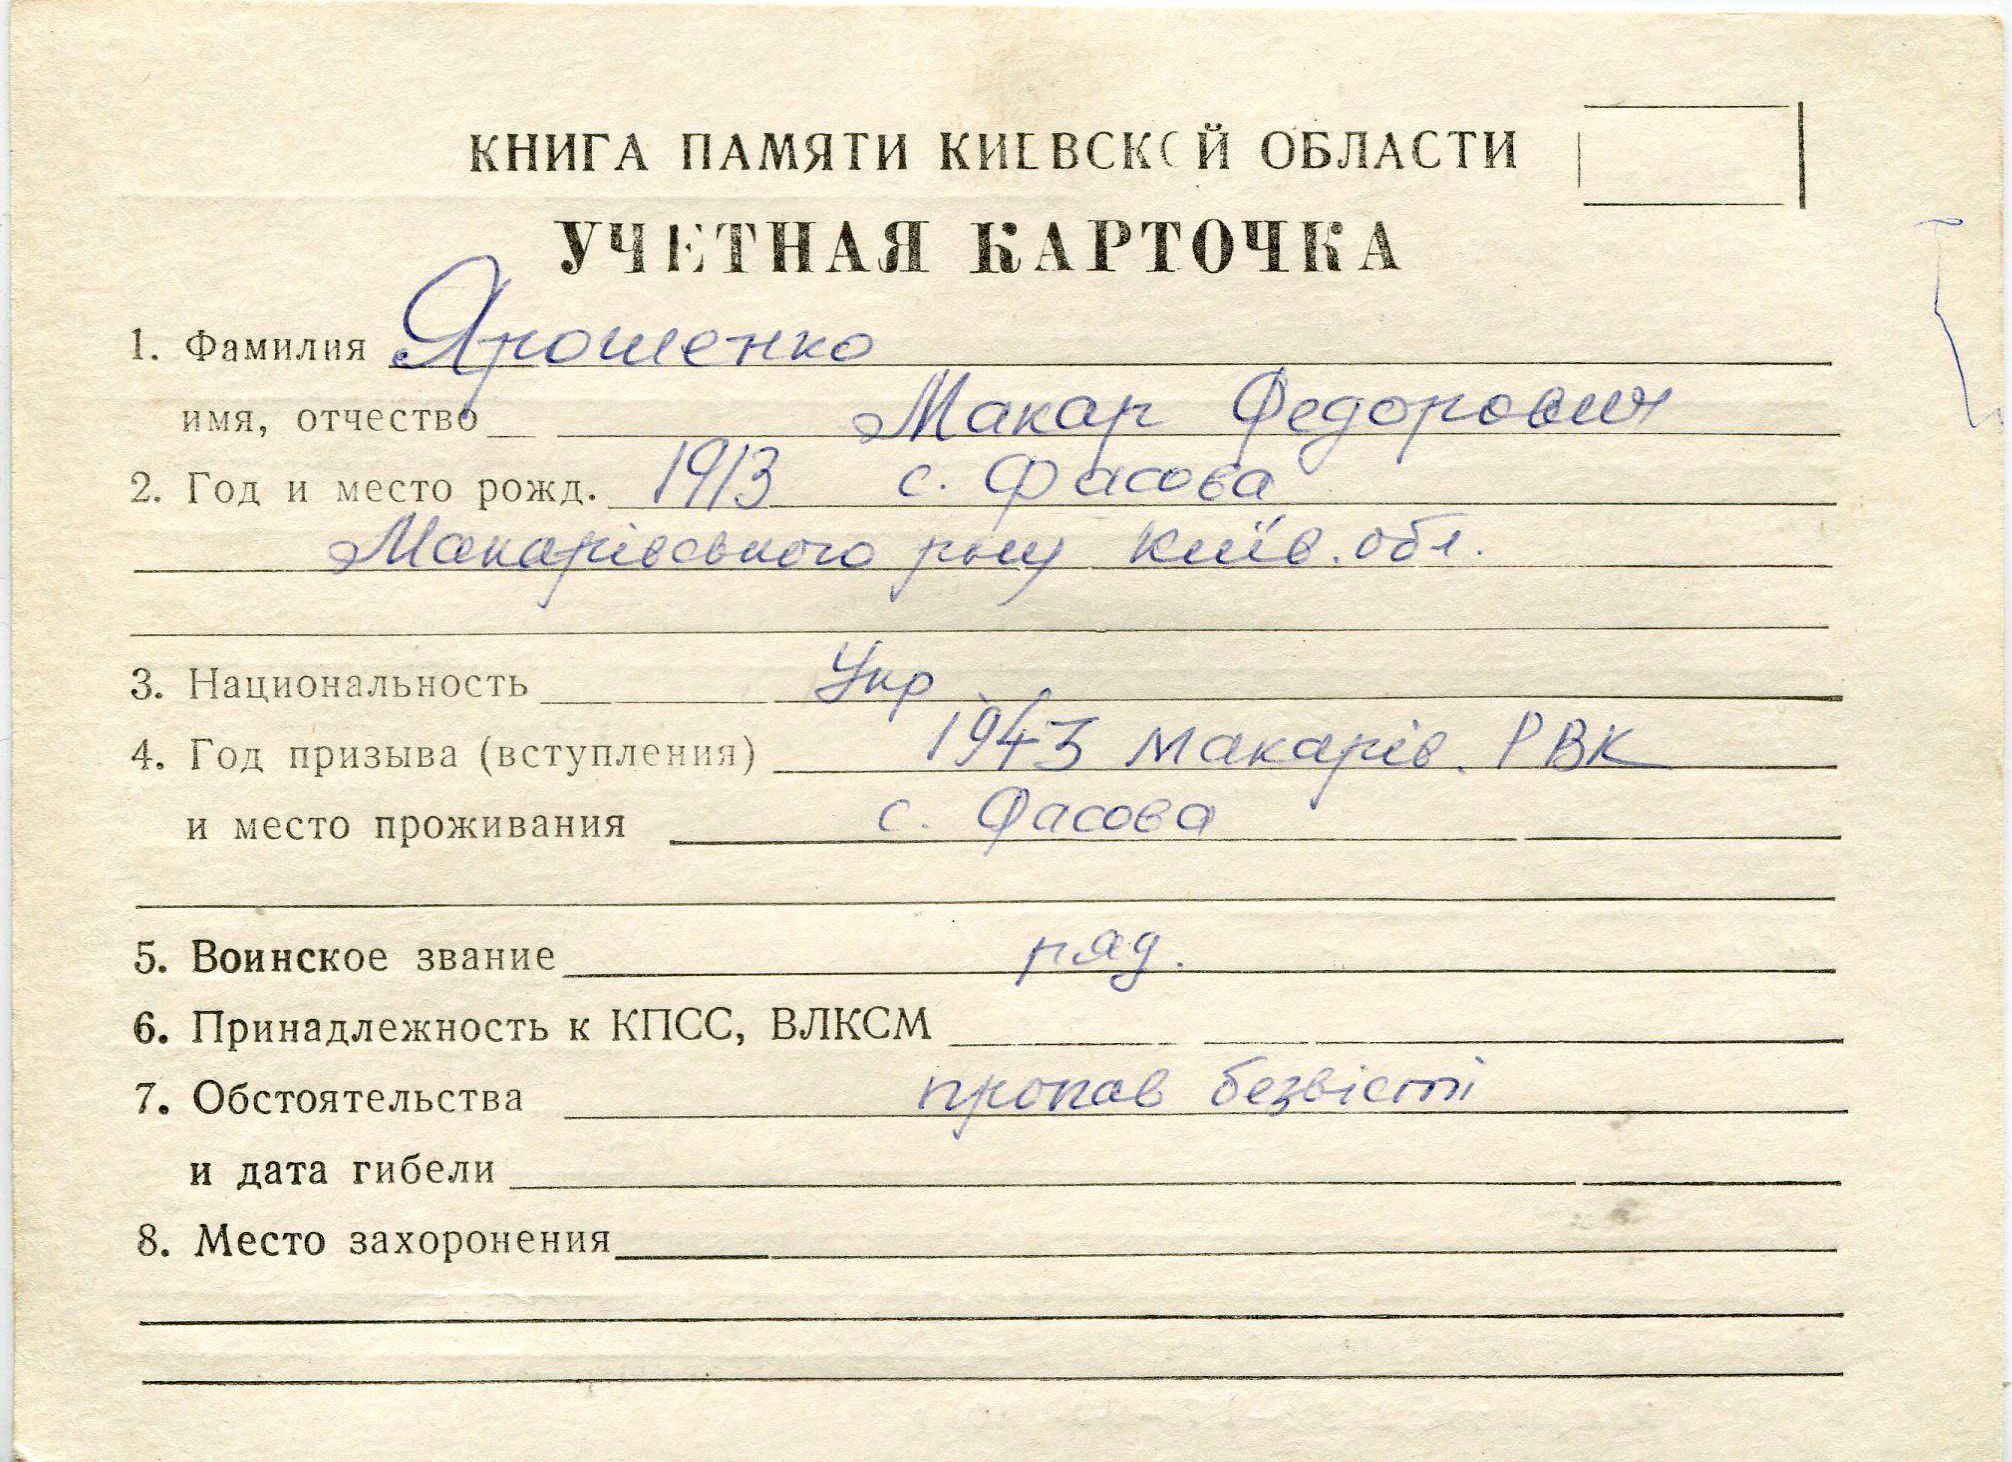 КНИГА ПАМЯТИ КИЕВСКОЙ ОБЛАСТИ
УЧЕТНАЯ КАРТОЧКА
1. Фамилия Ярошенко
имя, отчество Макар Федорович
2. Год и место рожд. 1913 с. Фасова
Макарівського р-ну Київ. обл.
3. Национальность Укр
4. Год призыва (вступления) 1943 Макарів. РВК
и место проживания с. Фасова
5. Воинское звание ряд.
6. Принадлежность к КПСС, ВЛКСМ
7. Обстоятельства пропав безвісті
и дата гибели
8. Место захоронения